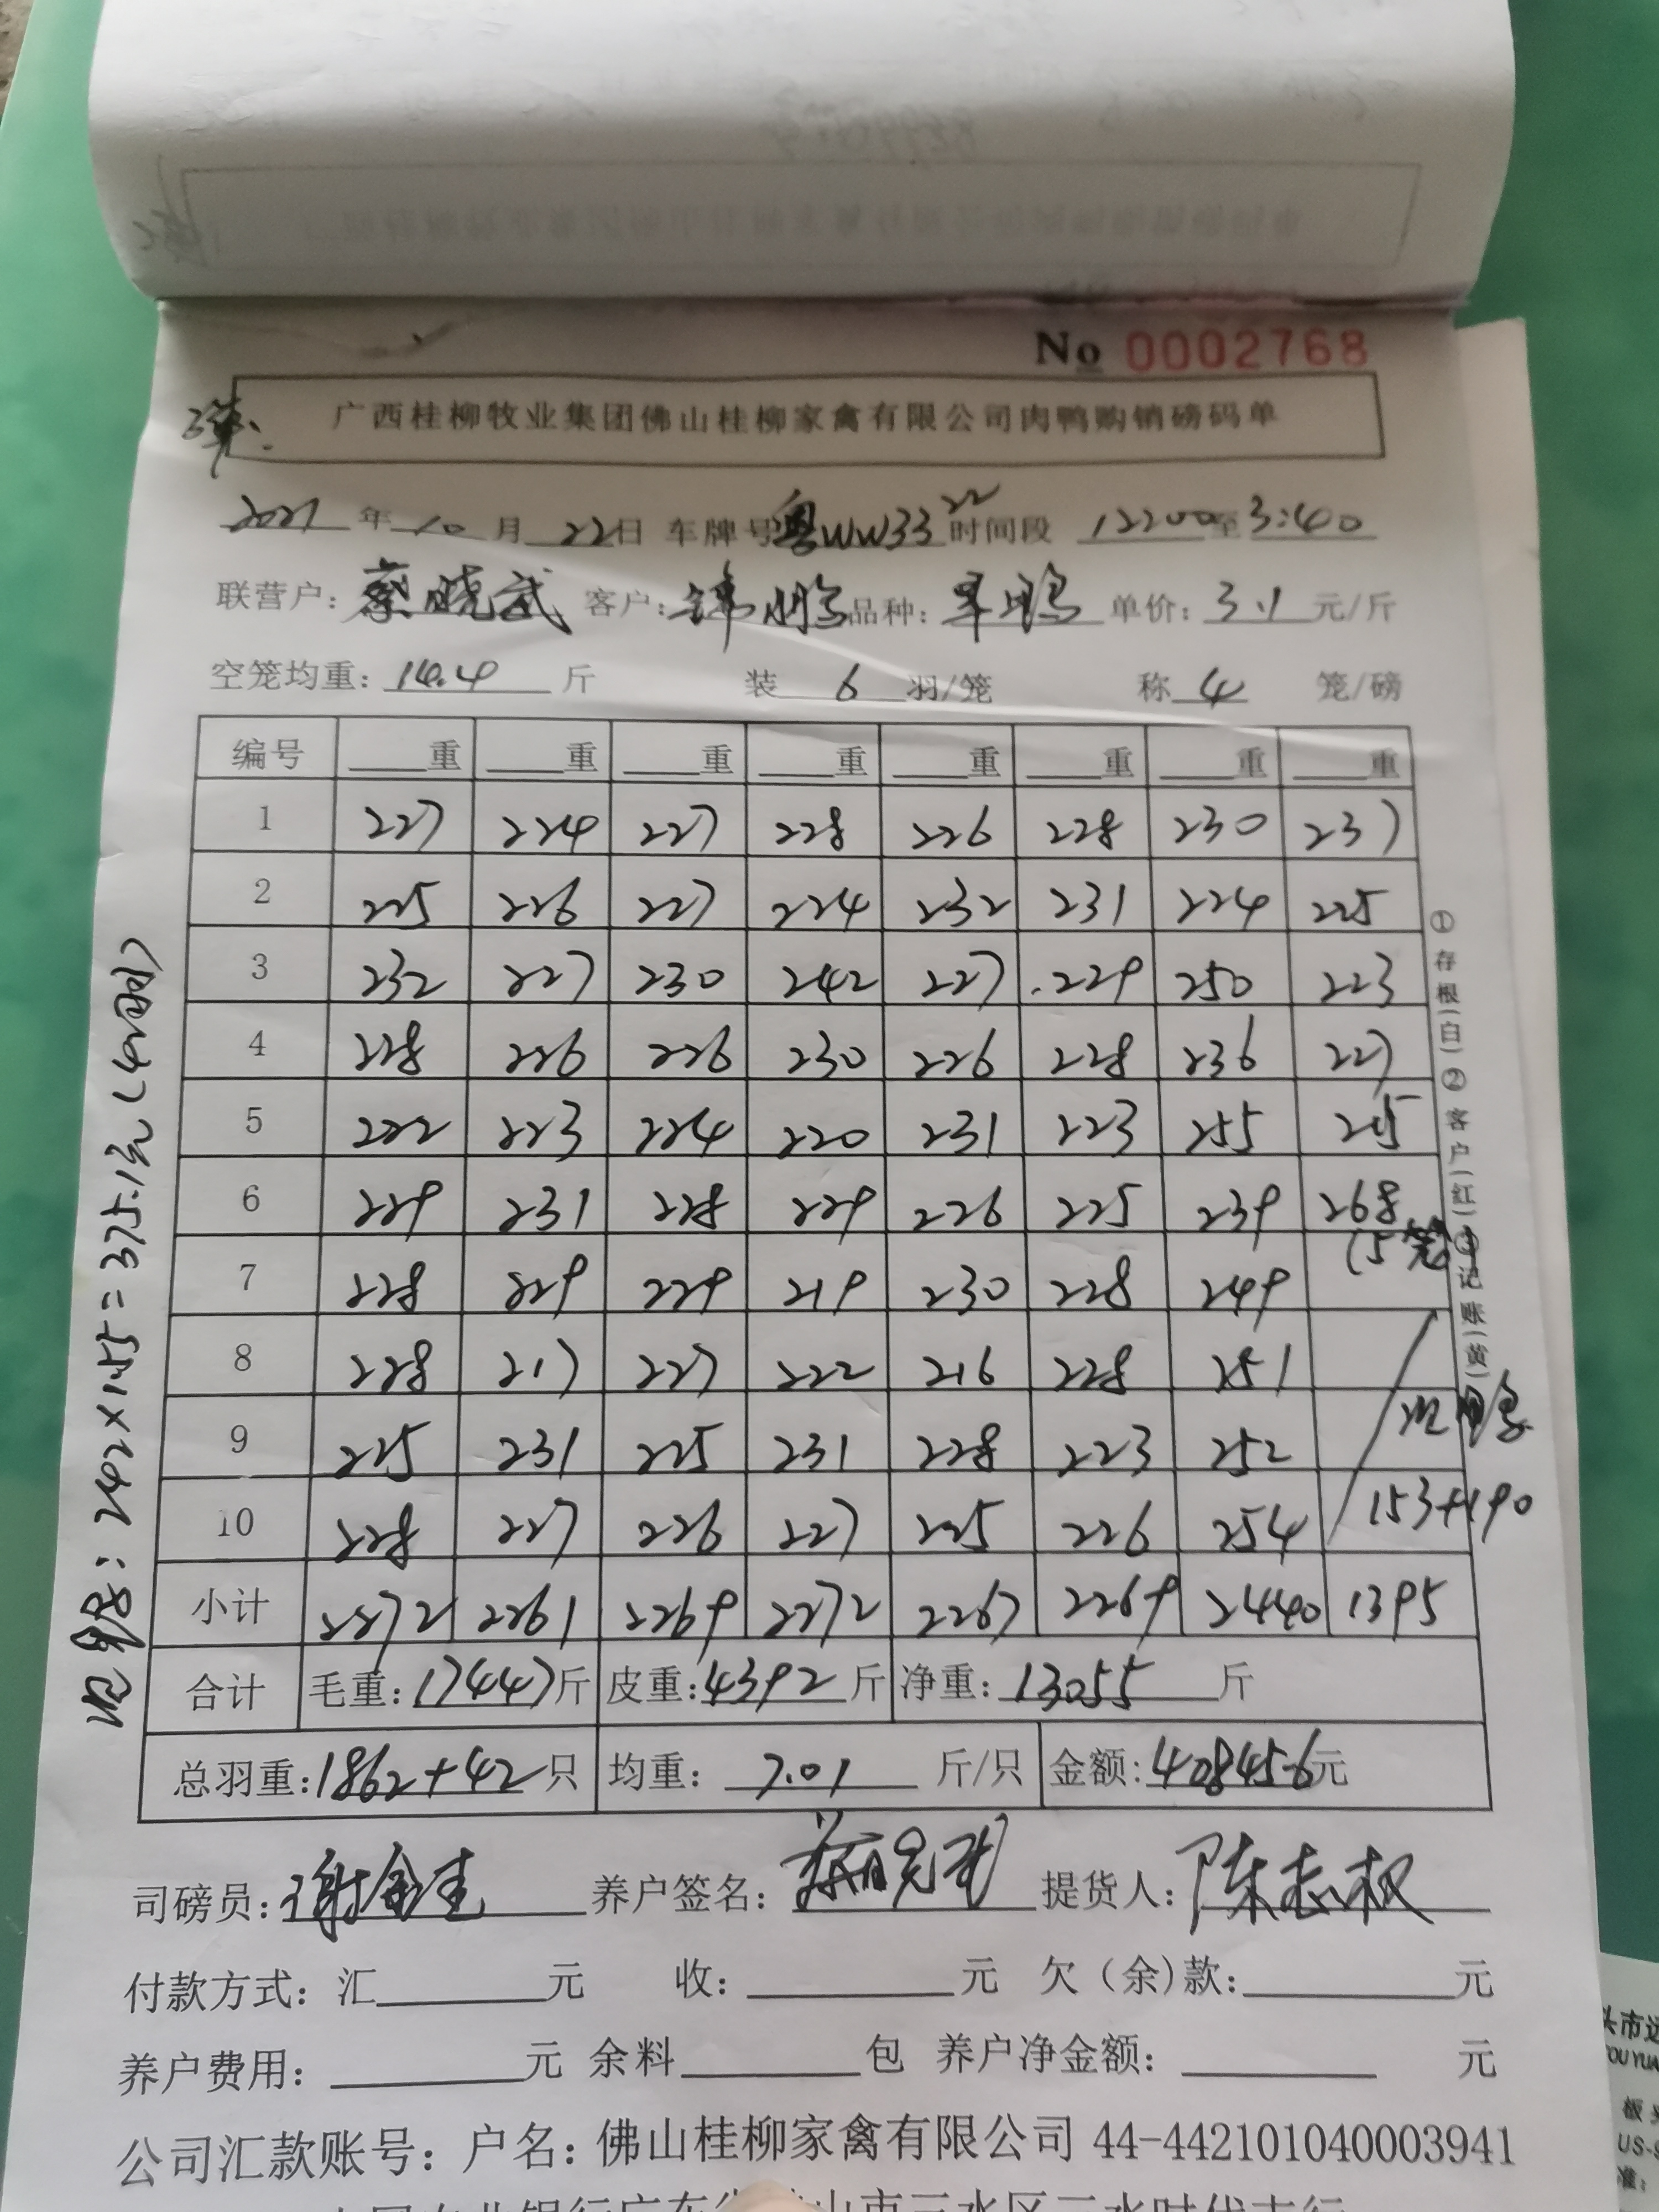 No 0002768
广西桂柳牧业集团佛山桂柳家禽有限公司肉鸭购销磅码单
2021 年 10 月 22 日 车牌号 粤WW3322 时间段 12:00 至 3:40
联营户: 蔡晓武 客户: 锦鹏 品种: 单价: 3.1 元/斤
空笼均重: 14.4 斤 装 6 羽/笼 称 4 笼/磅
编号 重 重 重 重 重 重 重 重
1 227 224 227 228 226 228 230 237
2 225 226 227 224 232 231 224 225
3 232 227 230 242 227 229 250 223
4 228 226 226 230 226 228 236 227
5 222 223 224 220 231 223 255 215
6 229 231 228 229 226 225 239 268
(5笼)
7 228 229 229 219 230 228 249
8 228 217 227 222 216 228 251
9 225 231 225 231 228 223 252
10 228 227 226 227 225 226 254 153+190
小计 2272 2261 2269 2272 2267 2269 2440 1395
合计 毛重: 17447 斤 皮重: 4392 斤 净重: 13055 斤
总羽重: 1862+42 只 均重: 7.01 斤/只 金额: 40845.6 元
司磅员: 谢金生 养户签名: 蔡晓武 提货人: 陈志权
付款方式: 汇 元 收: 元 欠(余)款: 元
养户费用: 元 余料 包 养户净金额: 元
公司汇款账号: 户名: 佛山桂柳家禽有限公司 44-442101040003941
①存根(白)②客户(红)③记账(黄)
242×1.55=375.1元(42羽)